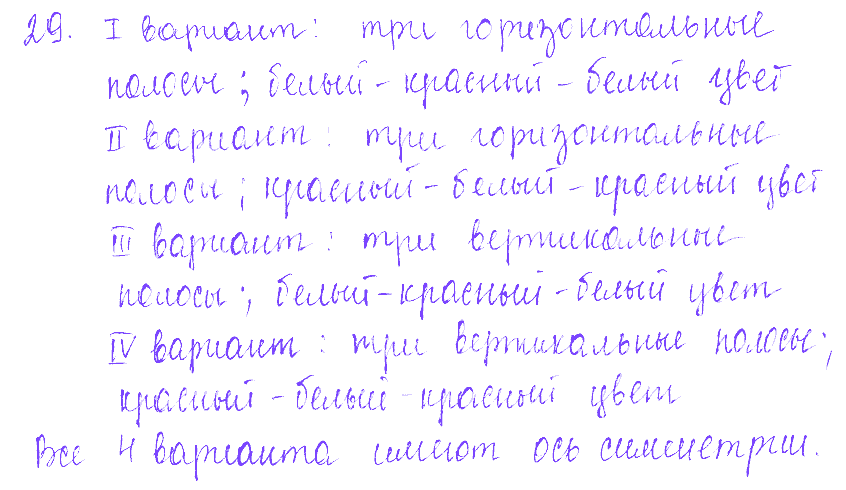 29. I вариант: три горизонтальные
полосы; белый-красный-белый цвет
II вариант: три горизонтальные
полосы; красный-белый-красный цвет
III вариант: три вертикальные
полосы; белый-красный-белый цвет
IV вариант: три вертикальные полосы;
красный-белый-красный цвет
Все 4 варианта имеют ось симметрии.